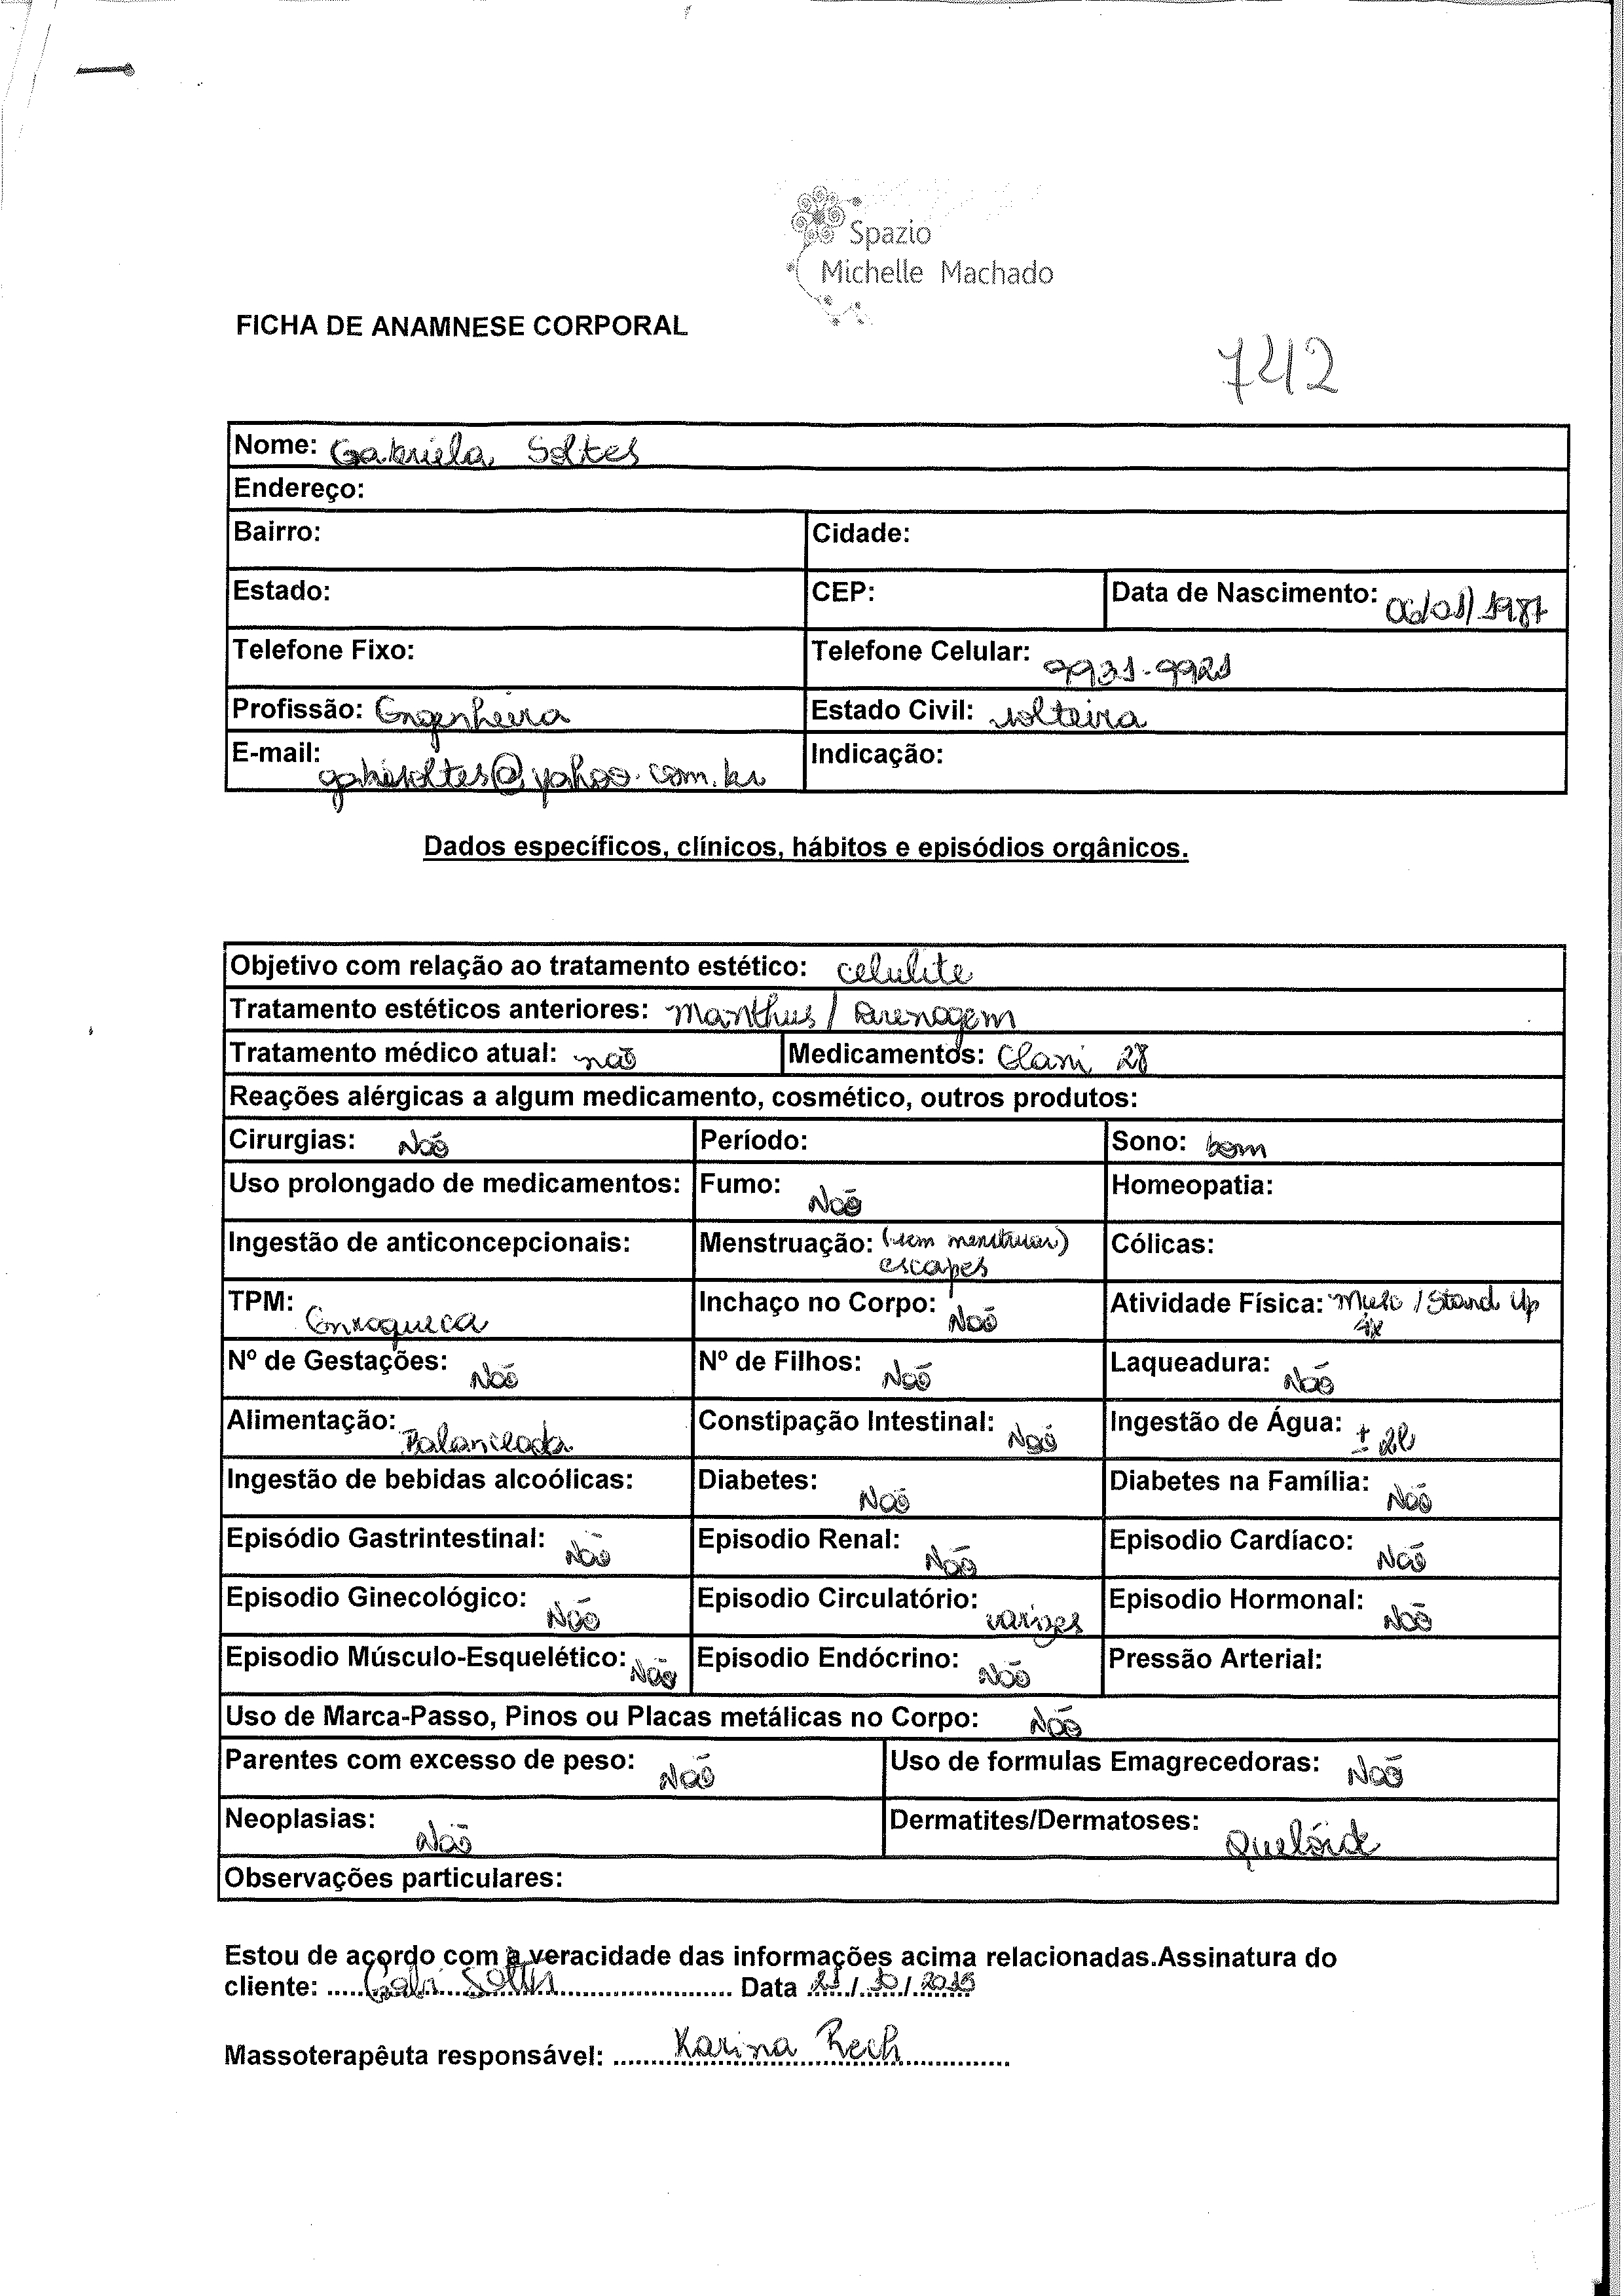 Spazio
Michelle Machado
FICHA DE ANAMNESE CORPORAL
742
Nome: Gabriela Soltes
Endereço:
Bairro: Cidade:
Estado: CEP: Data de Nascimento: 06/01/1987
Telefone Fixo: Telefone Celular: 9931-9921
Profissão: Engenheira Estado Civil: solteira
E-mail: gabisoltes@yahoo.com.br Indicação:
Dados específicos, clínicos, hábitos e episódios orgânicos.
Objetivo com relação ao tratamento estético: celulite
Tratamento estéticos anteriores: Manthus / Drenagem
Tratamento médico atual: não Medicamentos: Clani 28
Reações alérgicas a algum medicamento, cosmético, outros produtos:
Cirurgias: Não Período: Sono: bom
Uso prolongado de medicamentos: Fumo: Não Homeopatia:
Ingestão de anticoncepcionais: Menstruação: (sem menstruar) Cólicas:
escapes
TPM: Enxaqueca Inchaço no Corpo: Não Atividade Física: Musc / Stand Up
4x
Nº de Gestações: Não Nº de Filhos: Não Laqueadura: Não
Alimentação: Balanceada Constipação Intestinal: Não Ingestão de Água: ± 2l
Ingestão de bebidas alcoólicas: Diabetes: Não Diabetes na Família: Não
Episódio Gastrintestinal: Não Episodio Renal: Não Episodio Cardíaco: Não
Episodio Ginecológico: Não Episodio Circulatório: varizes Episodio Hormonal: Não
Episodio Músculo-Esquelético: Não Episodio Endócrino: Não Pressão Arterial:
Uso de Marca-Passo, Pinos ou Placas metálicas no Corpo: Não
Parentes com excesso de peso: Não Uso de formulas Emagrecedoras: Não
Neoplasias: Não Dermatites/Dermatoses: Quelóide
Observações particulares:
Estou de acordo com a veracidade das informações acima relacionadas.Assinatura do
cliente: ..... Gabi Soltes ..... Data 21/10/2015
Massoterapêuta responsável: ..... Karina Rech .....